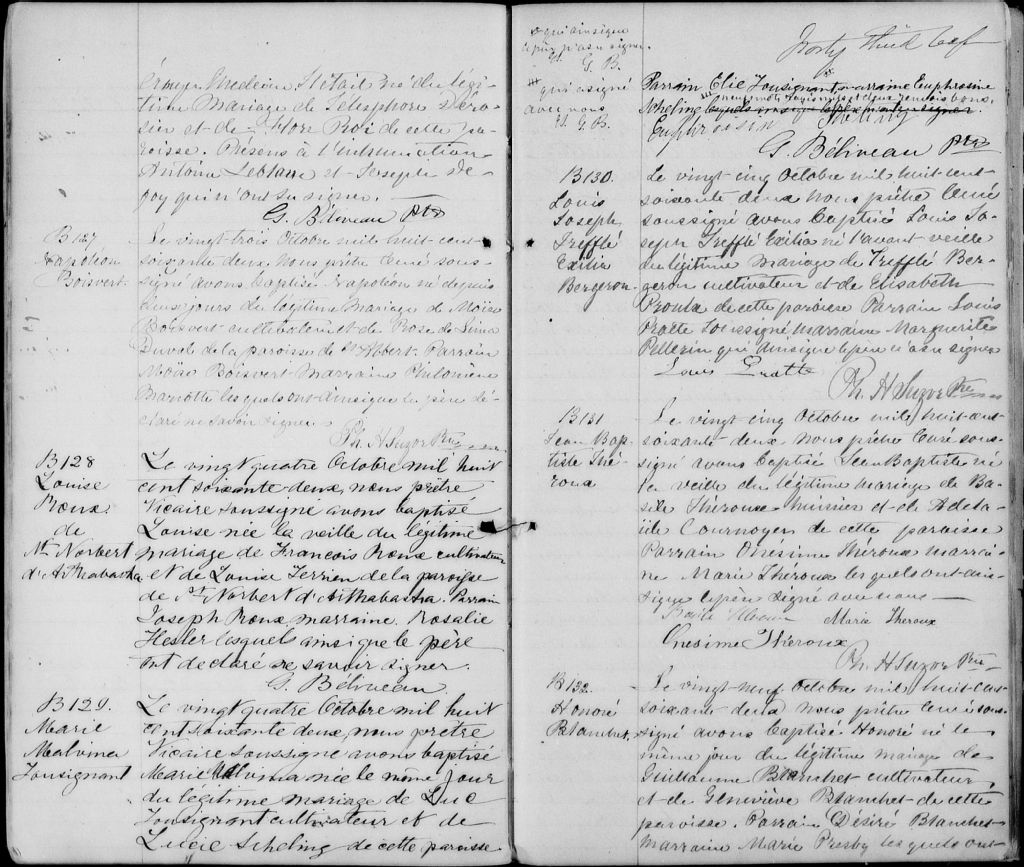 Médecin Notaire né du légi-
time Mariage de Télesphore
et de Flore Roi de cette pa-
roisse. Présens à l'inhumation
Antoine Leblanc et Joseph
qui n'ont su signer.
G. Béliveau Ptre
B 127
Napoléon
Boisvert
Le vingt trois Octobre mil huit cent
soixante deux, Nous prêtre Curé sous-
signé avons baptisé Napoléon né depuis
jours du légitime Mariage de Moïse
Boisvert cultivateur et de Rose de Lima
Duval de la paroisse de St Albert. Parrain
Moïse Boisvert Marraine Philomène
Mariotte lesquels ont ainsi que le père dé-
claré ne savoir signer.
Ph. H Suzor Ptre
B 128
Louise
Roux
de
St Norbert
d'Arthabaska
Le vingt quatre Octobre mil huit
cent soixante deux, nous prêtre
Vicaire soussigné avons baptisé
Louise née la veille du légitime
mariage de François Roux cultivateur
et de Louise Terrien de la paroisse
de St Norbert d'Arthabaska. Parrain
Joseph Roux marraine Rosalie
Hesler lesquels ainsi que le père
ont déclaré ne savoir signer.
G. Béliveau
B 129.
Marie
Malvina
Tousignant
Le vingt quatre Octobre mil huit
cent soixante deux, nous prêtre
Vicaire soussigné avons baptisé
Marie Malvina née le même jour
du légitime mariage de Luc
Tousignant cultivateur et de
Lucie Scheling de cette paroisse
Forty third leaf
qui ainsi que
le père n'a su signer.
G. B.
qui a signé
avec nous
G. B.
Parrain Elie Tousignant marraine Euphrosine
Scheling
Euphrosin Sheling
G. Béliveau Ptre
B 130.
Louis
Joseph
Trefflé
Exilia
Bergeron
Le vingt cinq Octobre mil huit cent
soixante deux Nous prêtre Curé
soussigné avons baptisé Louis Jo-
seph Trefflé Exilia né l'avant veille
du légitime mariage de Trefflé Ber-
geron cultivateur et de Elisabeth
Proulx de cette paroisse Parrain Louis
Pratte soussigné marraine Marguerite
Pellerin qui ainsi que le père n'a su signer
Louis Pratte
Ph. H Suzor Ptre
B 131
Jean Bap-
tiste Thé-
roux
Le vingt cinq Octobre mil huit cent
soixante deux, nous prêtre Curé sous-
signé avons baptisé Jean Baptiste né
la veille du légitime mariage de Ba-
sile Théroux menuisier et de Adela-
ide Cournoyer de cette paroisse
Parrain Onésime Théroux marrai-
ne Marie Théroux lesquels ont ain-
si que le père signé avec nous
Marie Theroux
Onesime Théroux
Ph. H Suzor Ptre
B 132.
Honoré
Blanchet
Le vingt-neuf Octobre mil huit cent
soixante deux nous prêtre Curé sous-
signé avons baptisé Honoré né le
même jour du légitime mariage de
Guillaume Blanchet cultivateur
et de Geneviève Blanchet de cette
paroisse. Parrain Désiré Blanchet
Marraine Marie Presby lesquels ont